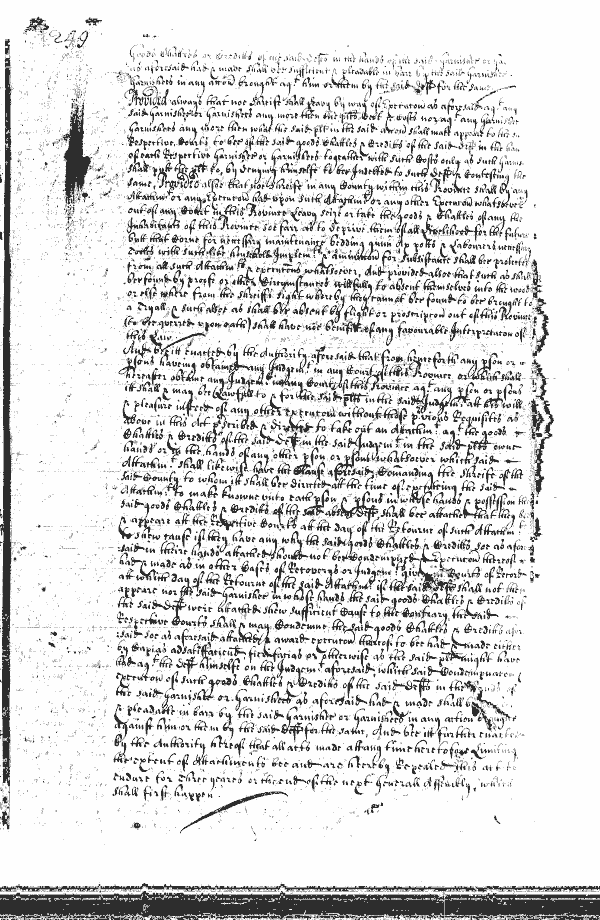 259
Goods Chattles or Creditts of the said Deft in the hands of the said Garnishee or Ga
as aforesaid had & made shall bee sufficient & pleadable in barr by the said Garnishee
Garnishees in any accon brought agt him or them by the said Deft for the same
Provided always that noe Sheriff shall Leavy by way of Execucon as aforesaid agt any
said Garnishee or Garnishees any more then the plts Debt & Costs nor agt any Garni
Garnishees any more then what the said plt in the said accon shall make appear to the s
Respective Courts to bee of the said goods Chattles & Creditts of the said Deft in the han
of each Respective Garnishee or Garnishees togeather with such Costs only as such Garnis
shall putt the plt to, by denying himselfe to bee Indebted to such Deft & Contesting the
same, Provided alsoe that noe Sheriffe in any County within this Province shall by any
Attachmt or any Execucon had upon such Attachmt or any other Execucon whatsoever
out of any Court in this Province Leavy seize or take the goods & Chattles of any the
Inhabitants of this Province soe farr as to deprive them of all Livelihood for the future
butt that Corne for necessary maintenance bedding gunn Ax potts & Labourers necessary
tooles with such like household Implemts & amunition for Subsistance shall bee protected
from all such Attachmts & execucons whatsoever, And provided alsoe that such as shall
bee found by proofe or other Circumstances willfully to absent themselves into the wood
or else where from the Sheriffs sight whereby they cannot bee found to bee brought to
a Tryall, & such alsoe as shall bee absent by flight or proscripcon out of this Province
(to bee averred upon oath) shall have noe benifitt of any favourable Interpretacon of
this Law
And bee itt enacted by the Authority aforesaid that from henceforth any pson or
psons having obtained any Judgemt in any Court of this Province or which shall
hereafter obtaine any Judgemt in any Court of this Province agt any pson or psons
itt shall & may bee Lawfull to & for the said plts in the said Judgemt att his will
& pleasure insteed of any other execucon without those pvious Requisites as
above in this Act pscribed & directed to take out an Attachmt agt the goods
Chattles & Creditts of the said Deft in the said Judgemt in the said plts owne
hands or in the hands of any other pson or psons whatsoever which said
Attachmt shall likewise have the Clause aforesaid Comanding the Sheriffe of the
said County to whom itt shall bee directed att the time of executing the said
Attachmt to make knowne unto each pson & psons in whose hands & possession the
said goods Chattles & Creditts of the said absent Deft shall bee attached that they b
& appeare att the Respective Courts att the day of the Retourne of such Attachmt
to shew cause if they have any why the said goods Chattles & Creditts soe as afore
said in theire hands attached should not bee Condempned & Execucon thereof
had & made as in other Cases of Recoverys or Judgemts given in Courts of Record
att which day of the Retourne of the said Attachmt if the said Deft shall not then
appeare nor the said Garnishee in whose hands the said goods Chattles & Creditts of
the said Deft were attached shew sufficient Cause to the Contrary the said
Respective Courts shall & may Condemne the said goods Chattles & Creditts afor
said soe as aforesaid attached, & award execucon thereof to bee had & made either
by Capias ad satisfaciend fieri facias or otherwise as the said plt might have
had agt the Deft himselfe on the Judgemt aforesaid which said Condempnacon
execucon of such goods Chattles & Creditts of the said Defts in the hands of
the said Garnishee or Garnishees as aforesaid had & made shall b
& pleadable in barr by the said Garnishee or Garnishees in any action brought
against him or them by the said Deft for the same, And bee itt further enacted
by the Authority hereof that all acts made att any time heretofore Limiting
the extent of Attachments bee and are hereby Repealed This act to
endure for Three yeares or the end of the next Generall Assembly, which
shall first happen